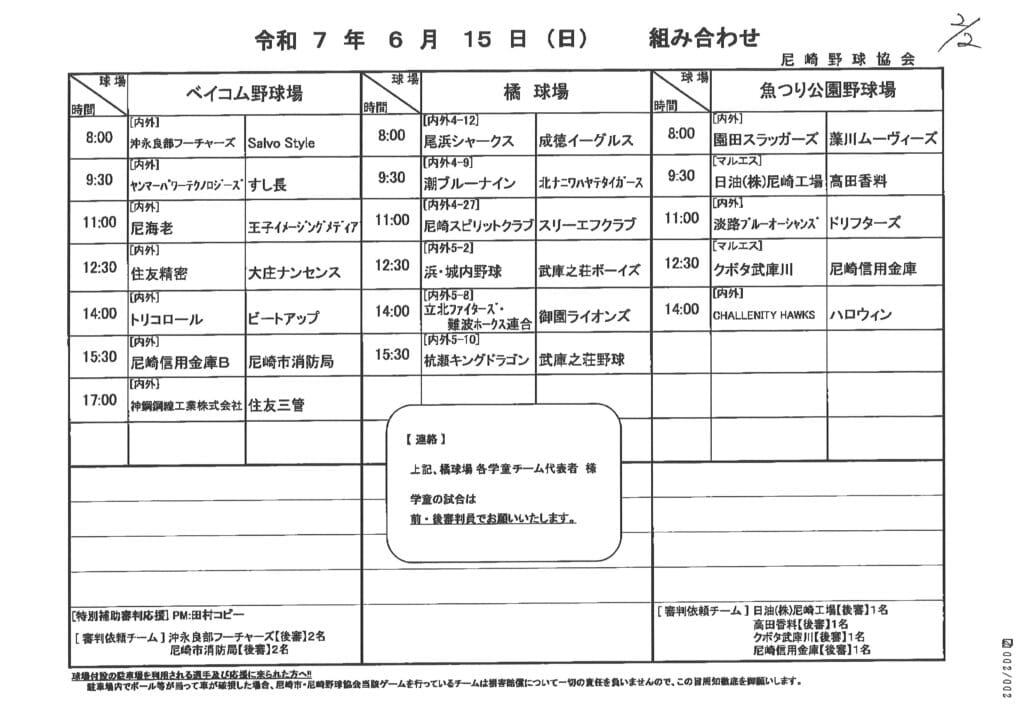 2/2
令和 7 年 6 月 15 日 （日） 組み合わせ
尼崎野球協会
球場
時間
ベイコム野球場
8:00
[内外]
沖永良部フーチャーズ Salvo Style
9:30
[内外]
ヤンマーパワーテクノロジーズ すし長
11:00
[内外]
尼海老 王子イメージングメディア
12:30
[内外]
住友精密 大庄ナンセンス
14:00
[内外]
トリコロール ビートアップ
15:30
[内外]
尼崎信用金庫B 尼崎市消防局
17:00
[内外]
神鋼鋼線工業株式会社 住友三管
[特別補助審判応援] PM:田村コピー
[ 審判依頼チーム ] 沖永良部フーチャーズ【後審】2名
尼崎市消防局【後審】2名
球場
時間
橘 球場
8:00
[内外4-12]
尾浜シャークス 成徳イーグルス
9:30
[内外4-9]
潮ブルーナイン 北ナニワハヤテタイガース
11:00
[内外4-27]
尼崎スピリットクラブ スリーエフクラブ
12:30
[内外5-2]
浜・城内野球 武庫之荘ボーイズ
14:00
[内外5-8]
立北ファイターズ・
難波ホークス連合 御園ライオンズ
15:30
[内外5-10]
杭瀬キングドラゴン 武庫之荘野球
【 連絡 】
上記、橘球場 各学童チーム代表者 様
学童の試合は
前・後審判員でお願いいたします。
球場
時間
魚つり公園野球場
8:00
[内外]
園田スラッガーズ 藻川ムーヴィーズ
9:30
[マルエス]
日油(株)尼崎工場 高田香料
11:00
[内外]
淡路ブルーオーシャンズ ドリフターズ
12:30
[マルエス]
クボタ武庫川 尼崎信用金庫
14:00
[内外]
CHALLENITY HAWKS ハロウィン
[ 審判依頼チーム ] 日油(株)尼崎工場【後審】1名
高田香料【後審】1名
クボタ武庫川【後審】1名
尼崎信用金庫【後審】1名
球場付設の駐車場を利用される選手及び応援に来られた方へ!!
駐車場内でボール等が当って車が破損した場合、尼崎市・尼崎野球協会当該ゲームを行っているチームは損害賠償について一切の責任を負いませんので、この旨周知徹底を御願いします。
002/002